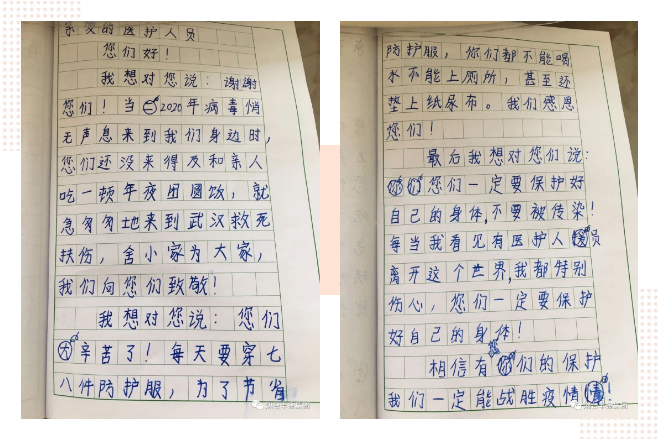 亲爱的医护人员
您们好！
我想对您说：谢谢
您们！当2020年病毒悄
无声息来到我们身边时，
您们还没来得及和亲人
吃一顿年夜团圆饭，就
急匆匆地来到武汉救死
扶伤，舍小家为大家，
我们向您们致敬！
我想对您说：您们
太辛苦了！每天要穿七
八件防护服，为了节省
防护服，你们都不能喝
水不能上厕所，甚至还
垫上纸尿布。我们感恩
您们！
最后我想对您们说：
您们一定要保护好
自己的身体，不要被传染！
每当我看见有医护人员
离开这个世界，我都特别
伤心，您们一定要保护
好自己的身体！
相信有您们的保护
我们一定能战胜疫情！